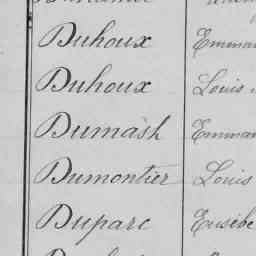 Duhoux Emman
Duhoux Louis
Dumash Emman
Dumontier Louis
Duparc Eusèbe